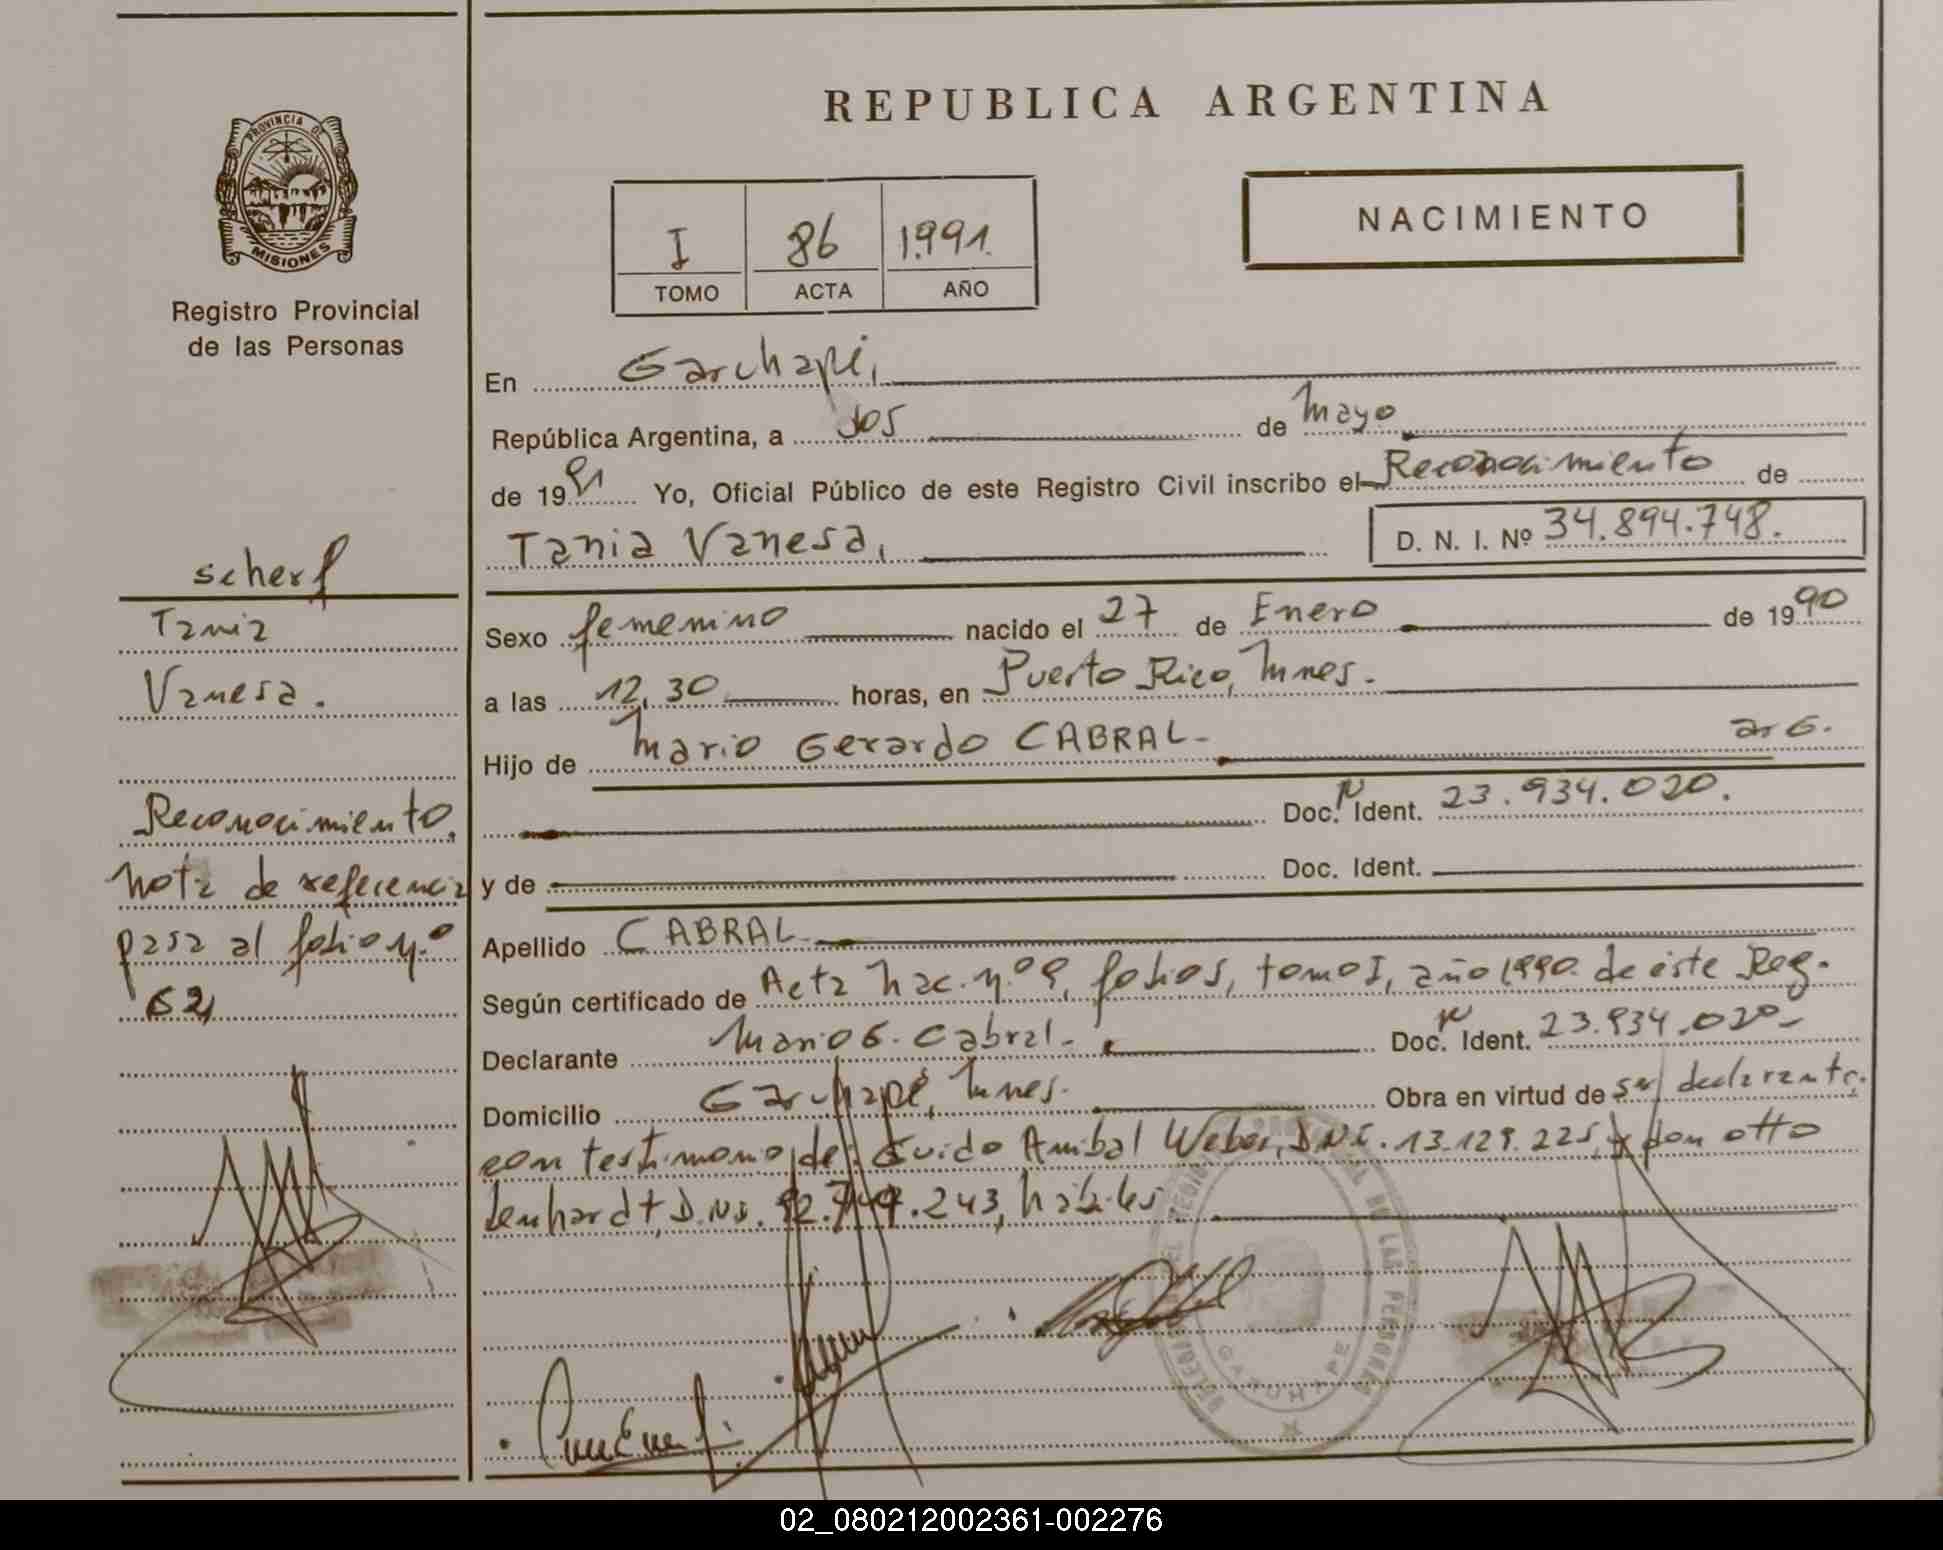 REPUBLICA ARGENTINA
PROVINCIA DE
MISIONES
Registro Provincial
de las Personas
I 86 1.991.
TOMO ACTA AÑO
NACIMIENTO
En Garuhapé,
República Argentina, a dos de Mayo
de 1991 Yo, Oficial Público de este Registro Civil inscribo el Reconocimiento de
Tania Vanesa, D. N. I. Nº 34.894.748.
Sexo femenino nacido el 27 de Enero de 1990
a las 12,30 horas, en Puerto Rico, Mnes.
Hijo de Mario Gerardo CABRAL- arG.
Doc. N Ident. 23.934.020.
y de Doc. Ident.
Apellido CABRAL
Según certificado de Acta Nac. nº 9, folio 5, tomo I, año 1990. de este Reg.
Declarante Mario G. Cabral- Doc. N Ident. 23.934.020-
Domicilio Garuhapé, Mnes. Obra en virtud de ser declarante.
con testimonio de: Guido Anibal Weber, D.N.I. 13.129.225, y don Otto
Lenhardt, D.N.I. 92.749.243, hábiles
scherf
Tania
Vanesa.
Reconocimiento,
Nota de referencia
pasa al folio nº
62,
GARUHAPE
02_080212002361-002276